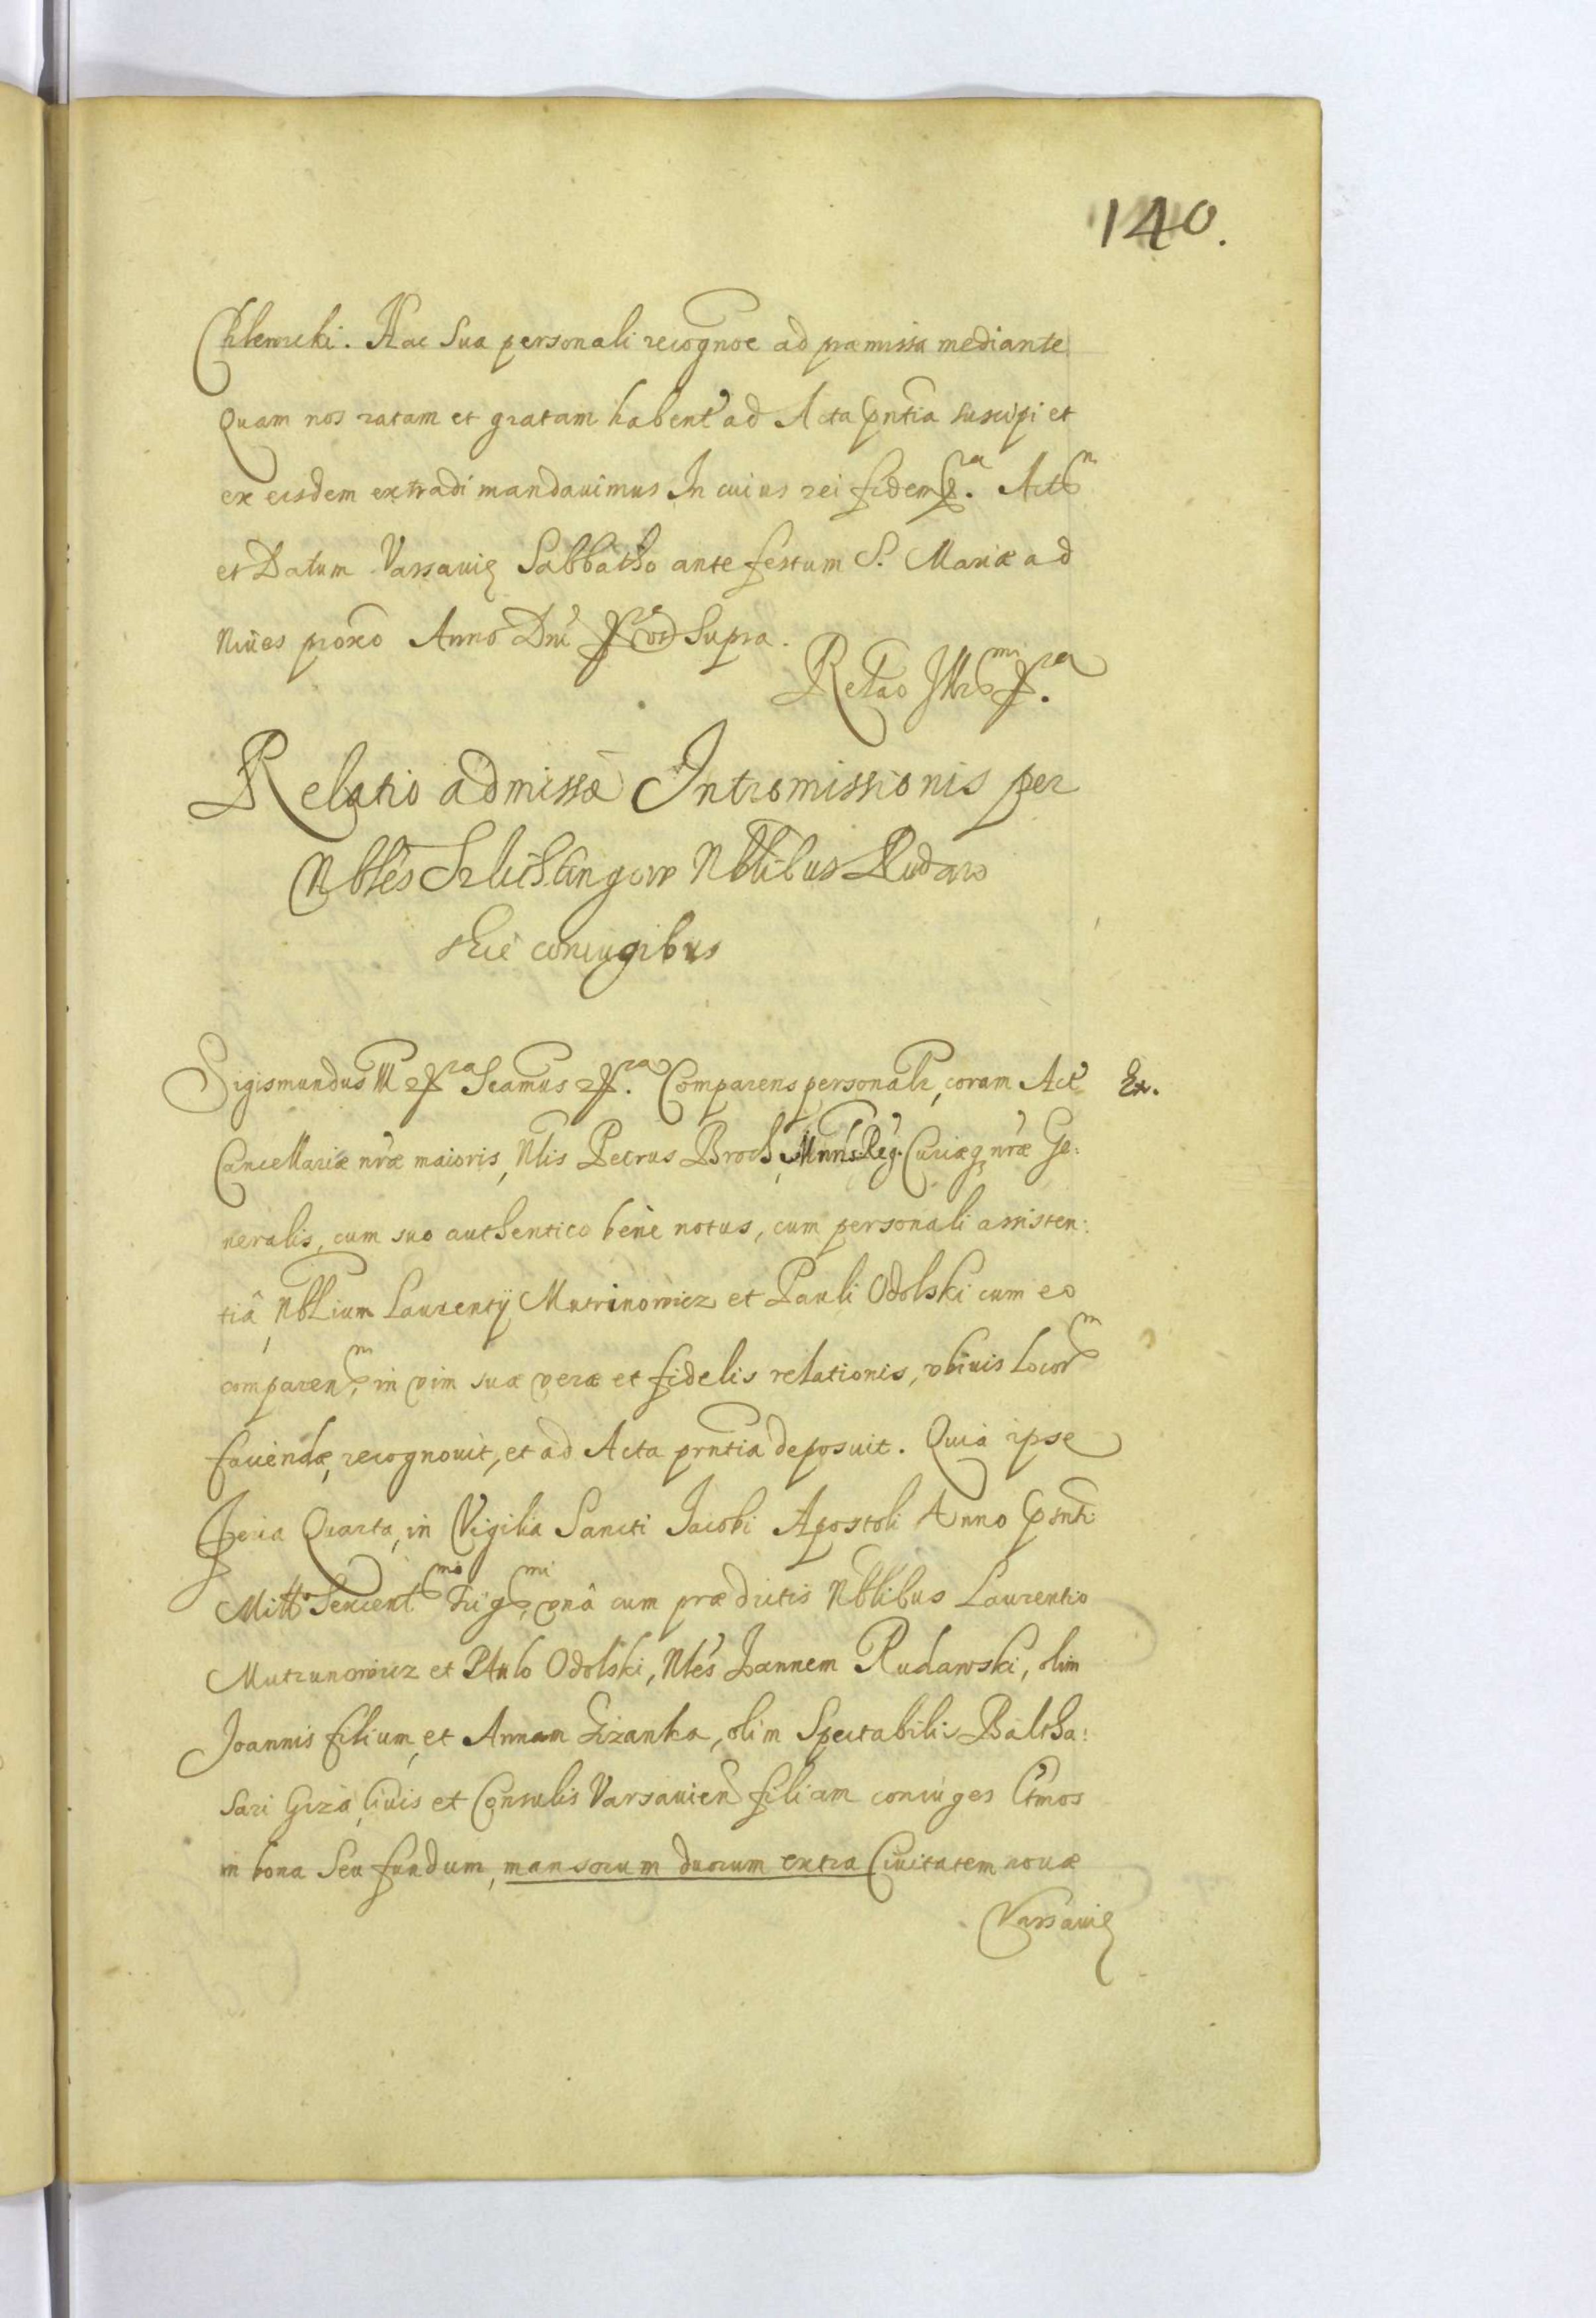 140.
Chlewicki. Hac Sua personali recognoe ad præmissa mediante
Quam nos ratam et gratam habent ad Acta pntia suscipi et
ex eisdem extradi mandavimus In cuius rei fidem Act
et Datum Varsaviæ Sabbatho ante festum S. Mariæ ad
Nives proxo Anno Dni Supra.
Relao Illris
Relatio admissæ Intromissionis per
Nbles Szlichtingow Nblibus Rudaw
skie coniugibus
Sigismundus III Seamus Comparens personalr, coram Act Ex.
Cancellariæ nræ maioris, Nlis Petrus Broch, Mnrls Reg. Curiæq nræ Ge:
neralis, cum suo authentico benè notus, cum personali assisten:
tiâ, Nblium Laurentÿ Mutrinowicz et Pauli Odolski cum eo
comparen, in vim suæ veræ et fidelis relationis, vbivis Locor
faciendæ, recognovit, et ad Acta prntia deposuit. Quia ipse
Feria Quarta, in Vigilia Sancti Jacobi Apostoli Anno pnti
Mill Sexcent Trig, vnâ cum prædictis Nblibus Laurentio
Mutrunowicz et Paulo Odolski, Nles Joannem Rudawski, olim
Joannis filium, et Annam Gizanka, olim Spectabilis Baltha:
sari Giza, Civis et Consulis Varsavien filiam coniuges Ltmos
in bona Seu fundum, mansorum duorum extra Civitatem novæ
Varsaviæ